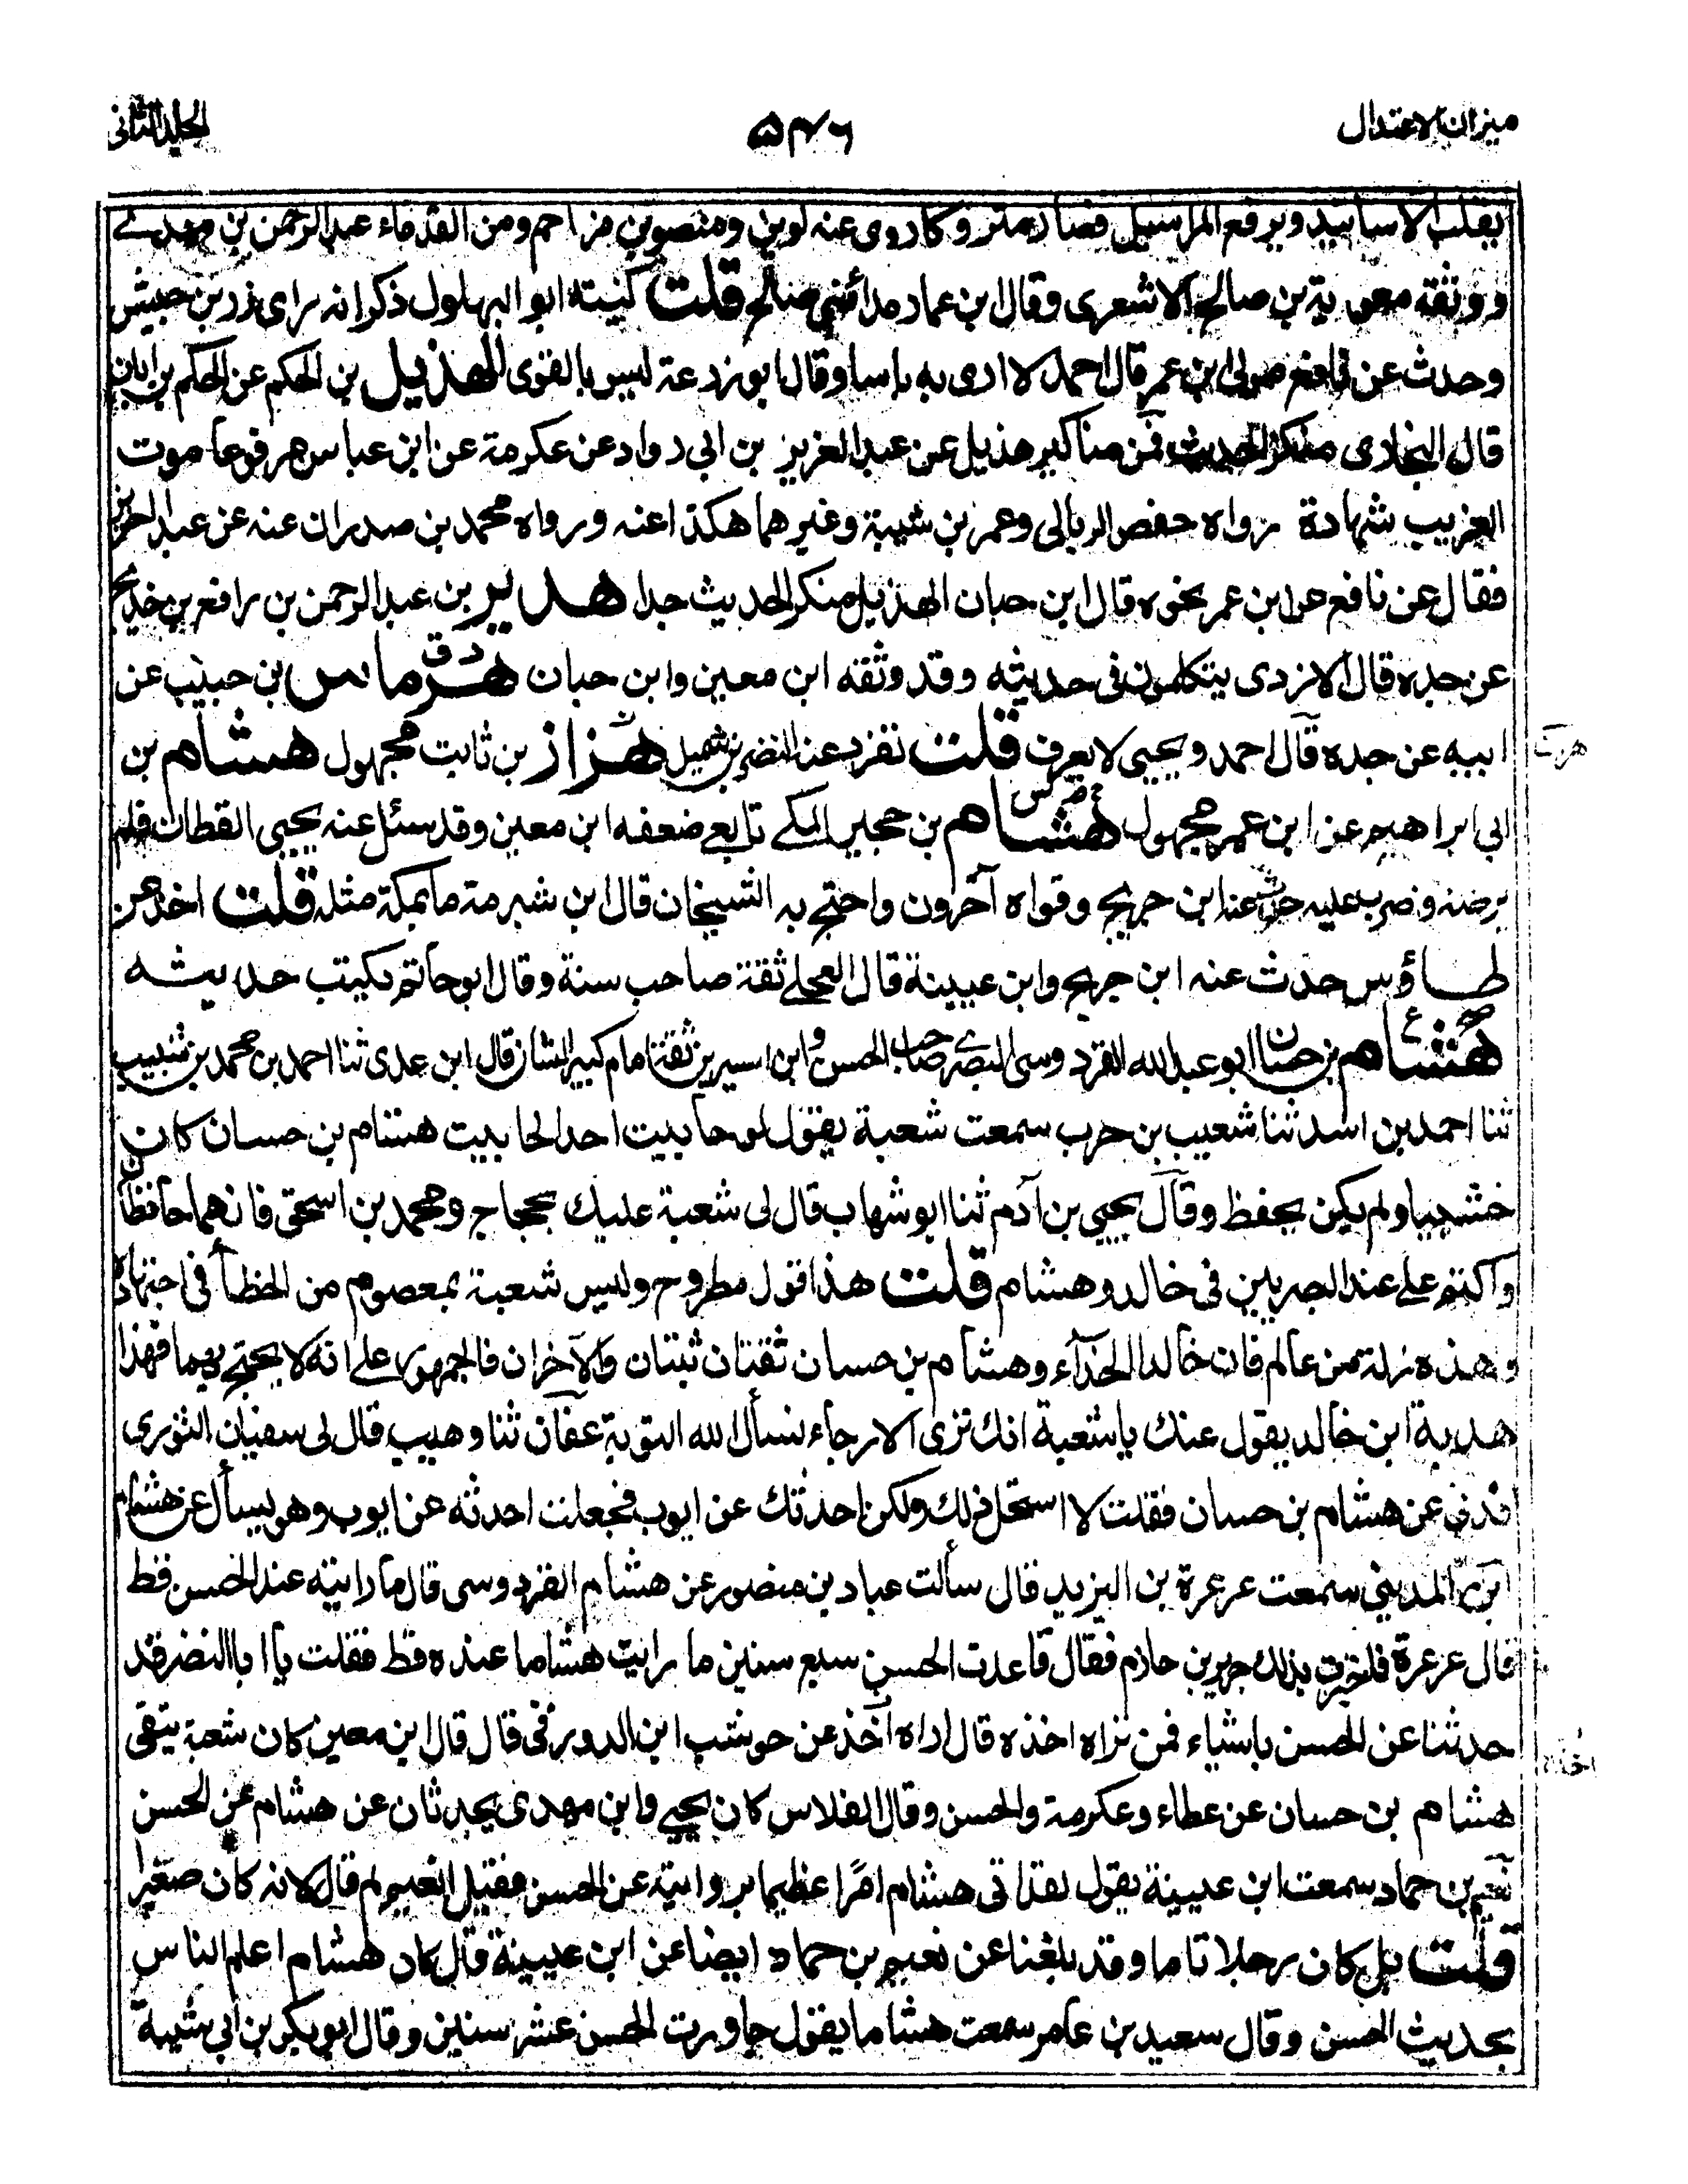 ميزان الاعتدال
٥٤٦
الجلد الثانى
يقلب الاسانيد ويرفع المراسيل فصار متروكا روى عنه لوين ومنصور بن مزاحم ومن القدماء عبد الرحمن بن مهدى
ووثقه معوية بن صالح الاشعرى وقال ابن عمار مدائنى صالح قلت كنيته ابو البهلول ذكر انه راى زر بن حبيش
وحدث عن نافع مولى ابن عمر قال احمد لا ارى به باسا وقال ابو زرعة ليس بالقوى الهذيل بن الحكم عن الحكم بن ابان
قال البخارى منكر الحديث فمن مناكير هذيل عن عبد العزيز بن ابى رواد عن عكرمة عن ابن عباس مرفوعا موت
الغريب شهادة رواه حفص الربالى وعمر بن شبة وغيرهما هكذا عنه ورواه محمد بن صدران عنه عن عبد العزيز
فقال عن نافع عن ابن عمر نحوه قال ابن حبان الهذيل منكر الحديث جدا هدير بن عبد الرحمن بن رافع بن خديج
عن جده قال الازدى يتكلمون فى حديثه وقد وثقه ابن معين وابن حبان هرماس بن حبيب عن
ابيه عن جده قال احمد ويحيى لا يعرف قلت تفرد عنه النضر بن شميل هزاز بن ثابت مجهول هشام بن
ابى ابراهيم عن ابن عمر مجهول هشام بن حجير المكى تابعى ضعفه ابن معين وقد سئل عنه يحيى القطان فلم
يرضه وضرب عليه حدث عنه ابن جريج وقواه آخرون واحتج به الشيخان قال ابن شبرمة ما بمكة مثله قلت اخذ عن
طاؤس حدث عنه ابن جريج وابن عيينة قال العجلى ثقة صاحب سنة وقال ابو حاتم يكتب حديثه
هشام بن حسان ابو عبد الله القردوسى البصرى صاحب الحسن وابن سيرين ثقة امام كبير الشان قال ابن عدى ثنا احمد بن محمد بن شبيب
ثنا احمد بن اسد ثنا شعيب بن حرب سمعت شعبة يقول لو حابيت احدا لحابيت هشام بن حسان كان
خشبيا ولم يكن يحفظ وقال يحيى بن آدم ثنا ابو شهاب قال لى شعبة عليك بحجاج ومحمد بن اسحق فانهما حافظان
واكتم على عند البصريين فى خالد وهشام قلت هذا قول مطروح وليس شعبة بمعصوم من الخطأ فى اجتهاده
وهذه زلة من عالم فان خالدا الحذآء وهشام بن حسان ثقتان ثبتان والآخران فالجمهور على انه لا يحتج بهما فهذا
هدبة ابن خالد يقول عنك ياشعبة انك ترى الارجاء نسأل الله التوبة عفان ثنا وهيب قال لى سفيان الثورى
افدنى عن هشام بن حسان فقلت لا استحل ذلك ولكن احدثك عن ايوب فجعلت احدثه عن ايوب وهو يسأل عن هشام
ابن المدينى سمعت عرعرة بن اليزيد قال سألت عباد بن منصور عن هشام القردوسى قال ما رايته عند الحسن قط
قال عرعرة فاخبرت بذلك جرير بن حازم فقال قاعدت الحسن سبع سنين ما رايت هشاما عنده قط فقلت يا ابا النضر قد
حدثنا عن الحسن باشياء فمن تراه اخذه قال اراه آخذ عن حوشب ابن الدورقى قال قال ابن معين كان شعبة يتقى
هشام بن حسان عن عطاء وعكرمة والحسن وقال الفلاس كان يحيى وابن مهدى يحدثان عن هشام عن الحسن
نعيم بن حماد سمعت ابن عيينة يقول لقد اتى هشام امرًا عظيما بروايته عن الحسن فقيل لنعيم لم قال لانه كان صغيرا
قلت بل كان رجلا تاما وقد بلغنا عن نعيم بن حماد ايضا عن ابن عيينة قال كان هشام اعلم الناس
بحديث الحسن وقال سعيد بن عامر سمعت هشاما يقول جاورت الحسن عشر سنين وقال ابو بكر بن ابى شيبة